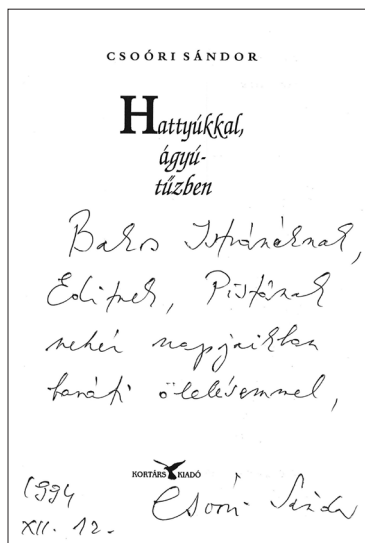 CSOÓRI SÁNDOR
Hattyúkkal,
ágyú-
tűzben
Bakos Istvánéknak,
Editnek, Pistának
nehéz napjaikban
baráti öleléssemmel,
KORTÁRS KIADÓ
1994
XII. 12.
Csoóri Sándor